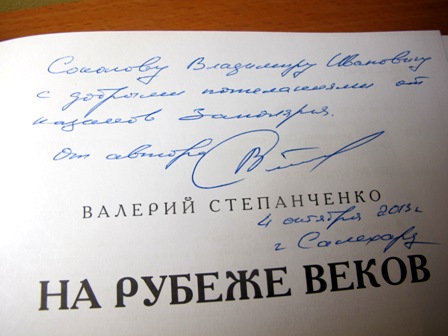 Соколову Владимиру Ивановичу
с добрыми пожеланиями от
казаков Заполярья.
От автора
ВАЛЕРИЙ СТЕПАНЧЕНКО
4 октября 2013 г.
г. Салехард
НА РУБЕЖЕ ВЕКОВ